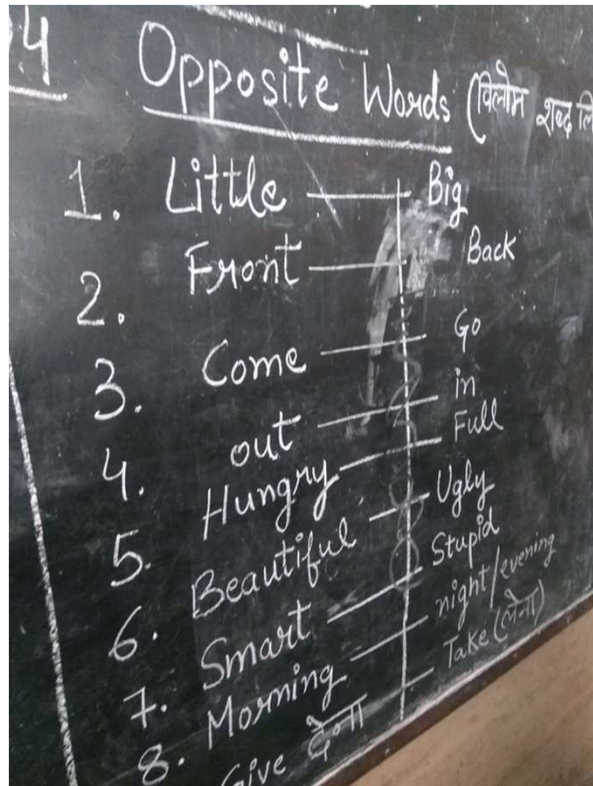 4 Opposite Words (विलोम शब्द लि
1. Little — Big
2. Front — Back
3. Come — Go
4. out — in
5. Hungry — Full
6. Beautiful — Ugly
7. Smart — Stupid
8. Morning — night/evening
Give देना Take (लेना)